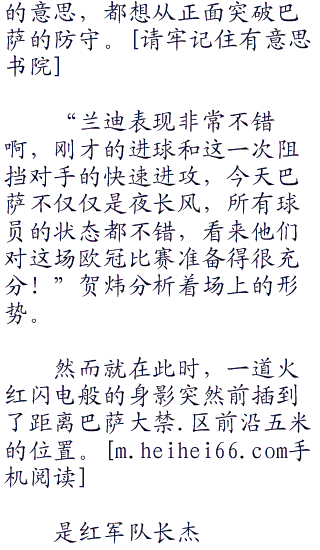 的意思，都想从正面突破巴
萨的防守。[请牢记住有意思
书院]
“兰迪表现非常不错
啊，刚才的进球和这一次阻
挡对手的快速进攻，今天巴
萨不仅仅是夜长风，所有球
员的状态都不错，看来他们
对这场欧冠比赛准备得很充
分！”贺炜分析着场上的形
势。
然而就在此时，一道火
红闪电般的身影突然前插到
了距离巴萨大禁.区前沿五米
的位置。[m.heihei66.com手
机阅读]
是红军队长杰